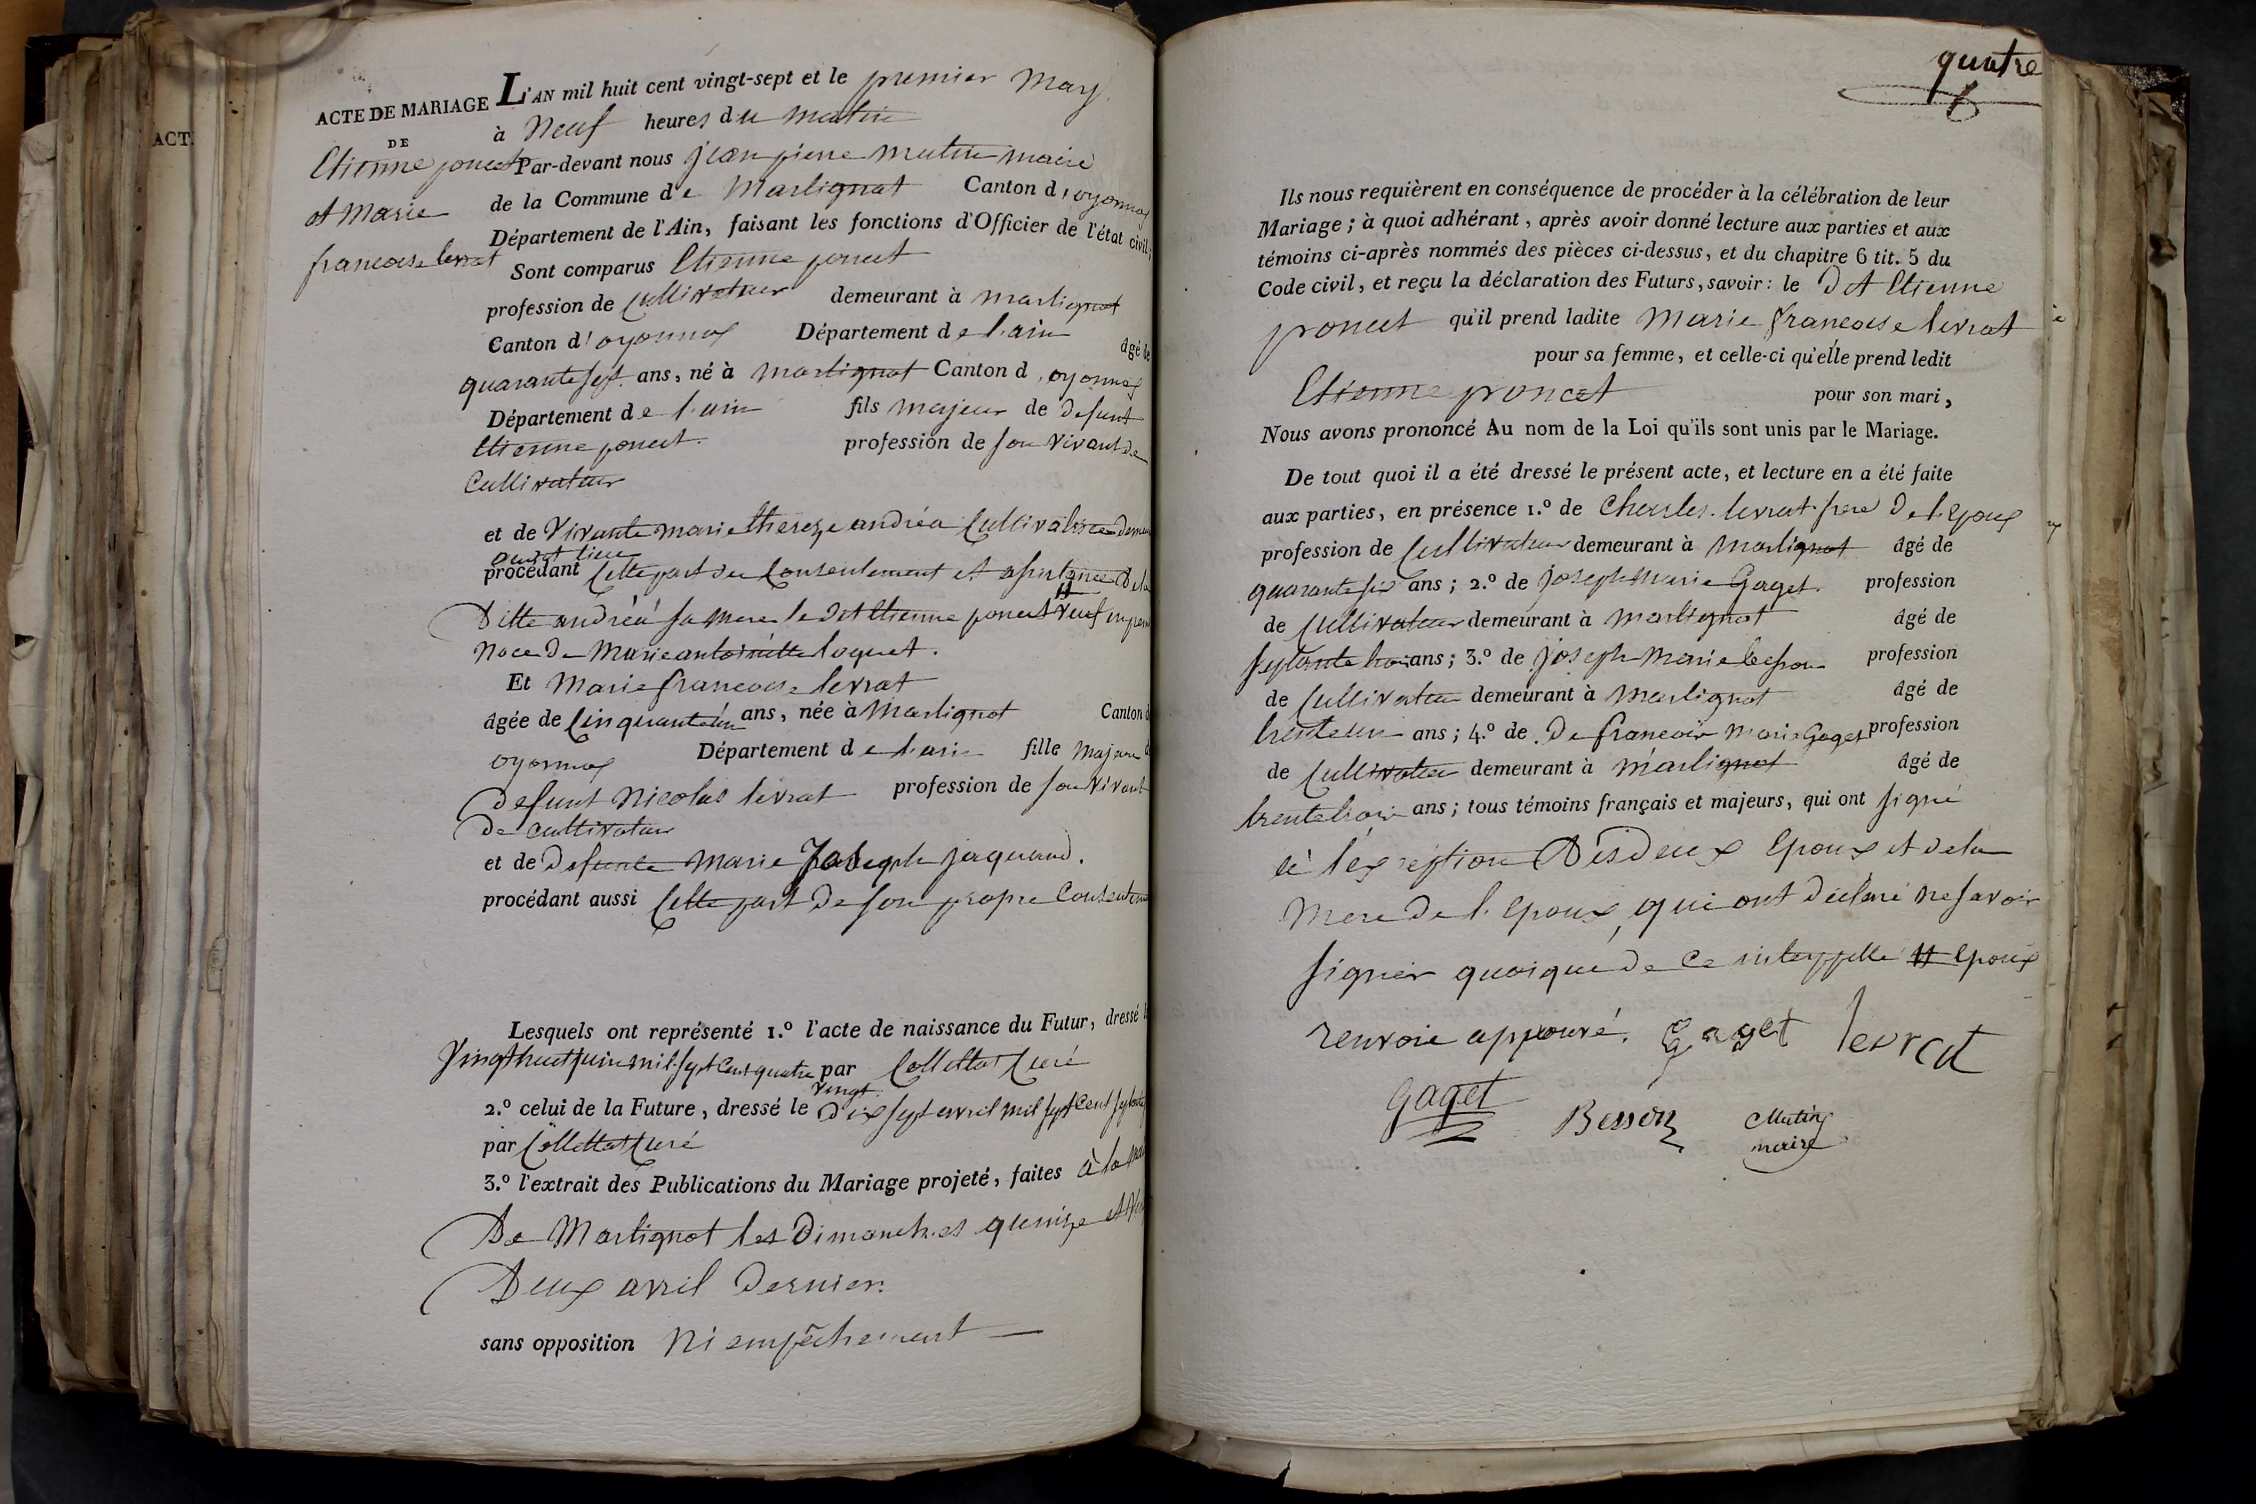 ACT
ACTE DE MARIAGE
DE
Etienne poncet
et Marie
francoise levrat
L'AN mil huit cent vingt-sept et le premier May
à Neuf heures du matin
Par-devant nous jean pierre mutin maire
de la Commune de Martignat Canton d'oyonnax
Département de l'Ain, faisant les fonctions d'Officier de l'état civil;
Sont comparus Etienne poncet
profession de Cultivateur demeurant à martignat
Canton d'oyonnax Département de l'ain âgé de
quarante sept ans, né à martignat Canton d'oyonnax
Département de l'ain fils majeur de defunt
Etienne poncet profession de son vivant de
Cultivateur
et de vivante marie thereze andréa Cultivatrice
procédant Cette part du Consentement et assistance de la
Ditte andréa sa mere le dit Etienne poncet veuf
Noce de Marie antoinette loquet.
Et Marie francoise levrat
âgée de Cinquante un ans, née à Martignat Canton d
oyonnax Département de l'ain fille majeure
defunt Nicolas levrat profession de son vivant
de cultivateur
et de defunte Marie Joseph jaquand.
procédant aussi Cette part de son propre
Lesquels ont représenté 1.º l'acte de naissance du Futur, dressé le
vingt huit juin mil sept Cent quatre par Collettat Curé
vingt
2.º celui de la Future, dressé le dix sept avril mil sept Cent
par Collettat Curé
3.º l'extrait des Publications du Mariage projeté, faites à la
De Martignat les Dimanches quinze et
Deux avril dernier.
sans opposition Ni empêchement
quatre
Ils nous requièrent en conséquence de procéder à la célébration de leur
Mariage; à quoi adhérant, après avoir donné lecture aux parties et aux
témoins ci-après nommés des pièces ci-dessus, et du chapitre 6 tit. 5 du
Code civil, et reçu la déclaration des Futurs, savoir: le dit Etienne
poncet qu'il prend ladite Marie francoise levrat
pour sa femme, et celle-ci qu'elle prend ledit
Etienne poncet pour son mari,
Nous avons prononcé Au nom de la Loi qu'ils sont unis par le Mariage.
De tout quoi il a été dressé le présent acte, et lecture en a été faite
aux parties, en présence 1.º de Charles levrat frere De l'epoux
profession de Cultivateur demeurant à martignat âgé de
quarante six ans; 2.º de joseph Marie Gaget profession
de Cultivateur demeurant à martignat âgé de
septante trois ans; 3.º de joseph Marie besson profession
de Cultivateur demeurant à Martignat âgé de
trente un ans; 4.º de De francois Marie Gaget profession
de Cultivateur demeurant à martignat âgé de
trente trois ans; tous témoins français et majeurs, qui ont signé
à l'exception Des Deux Epoux et de la
Mere De l'epoux, qui ont déclaré ne savoir
signer quoique de Ce interpellé # epoux
renvoie approuvé. Gaget levrat
Gaget Besson Mutin
maire